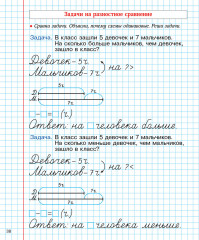 Задачи на разностное сравнение
• Сравни задачи. Объясни, почему схемы одинаковые. Реши задачи.
Задача. В класс зашли 5 девочек и 7 мальчиков.
На сколько больше мальчиков, чем девочек,
зашло в класс?
Девочек – 5ч.
Мальчиков – 7ч.
на ? >
5ч.
Д.
М.
7ч.
□ – □ = □ (ч.)
Ответ на □ человека больше.
Задача. В класс зашли 5 девочек и 7 мальчиков.
На сколько меньше девочек, чем мальчиков,
зашло в класс?
Девочек – 5ч.
Мальчиков – 7ч.
на ? <
5ч.
Д.
М.
7ч.
□ – □ = □ (ч.)
Ответ на □ человека меньше.